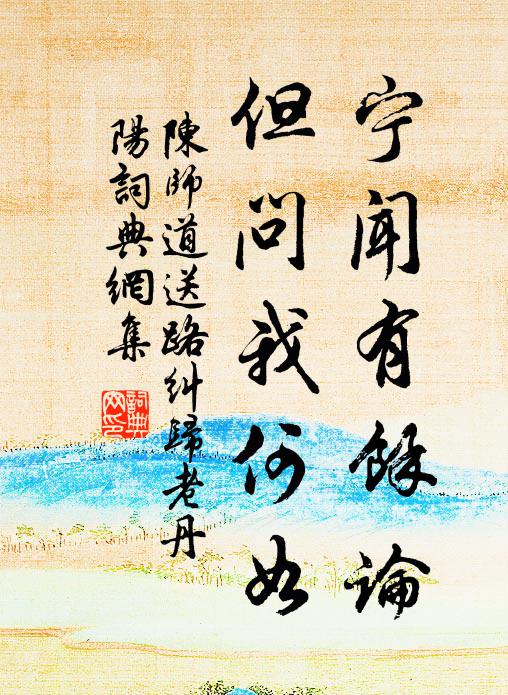 宁闻有馀论
但问我何如
陳師道送路糾歸老丹
陽詞典網集
詞典网印